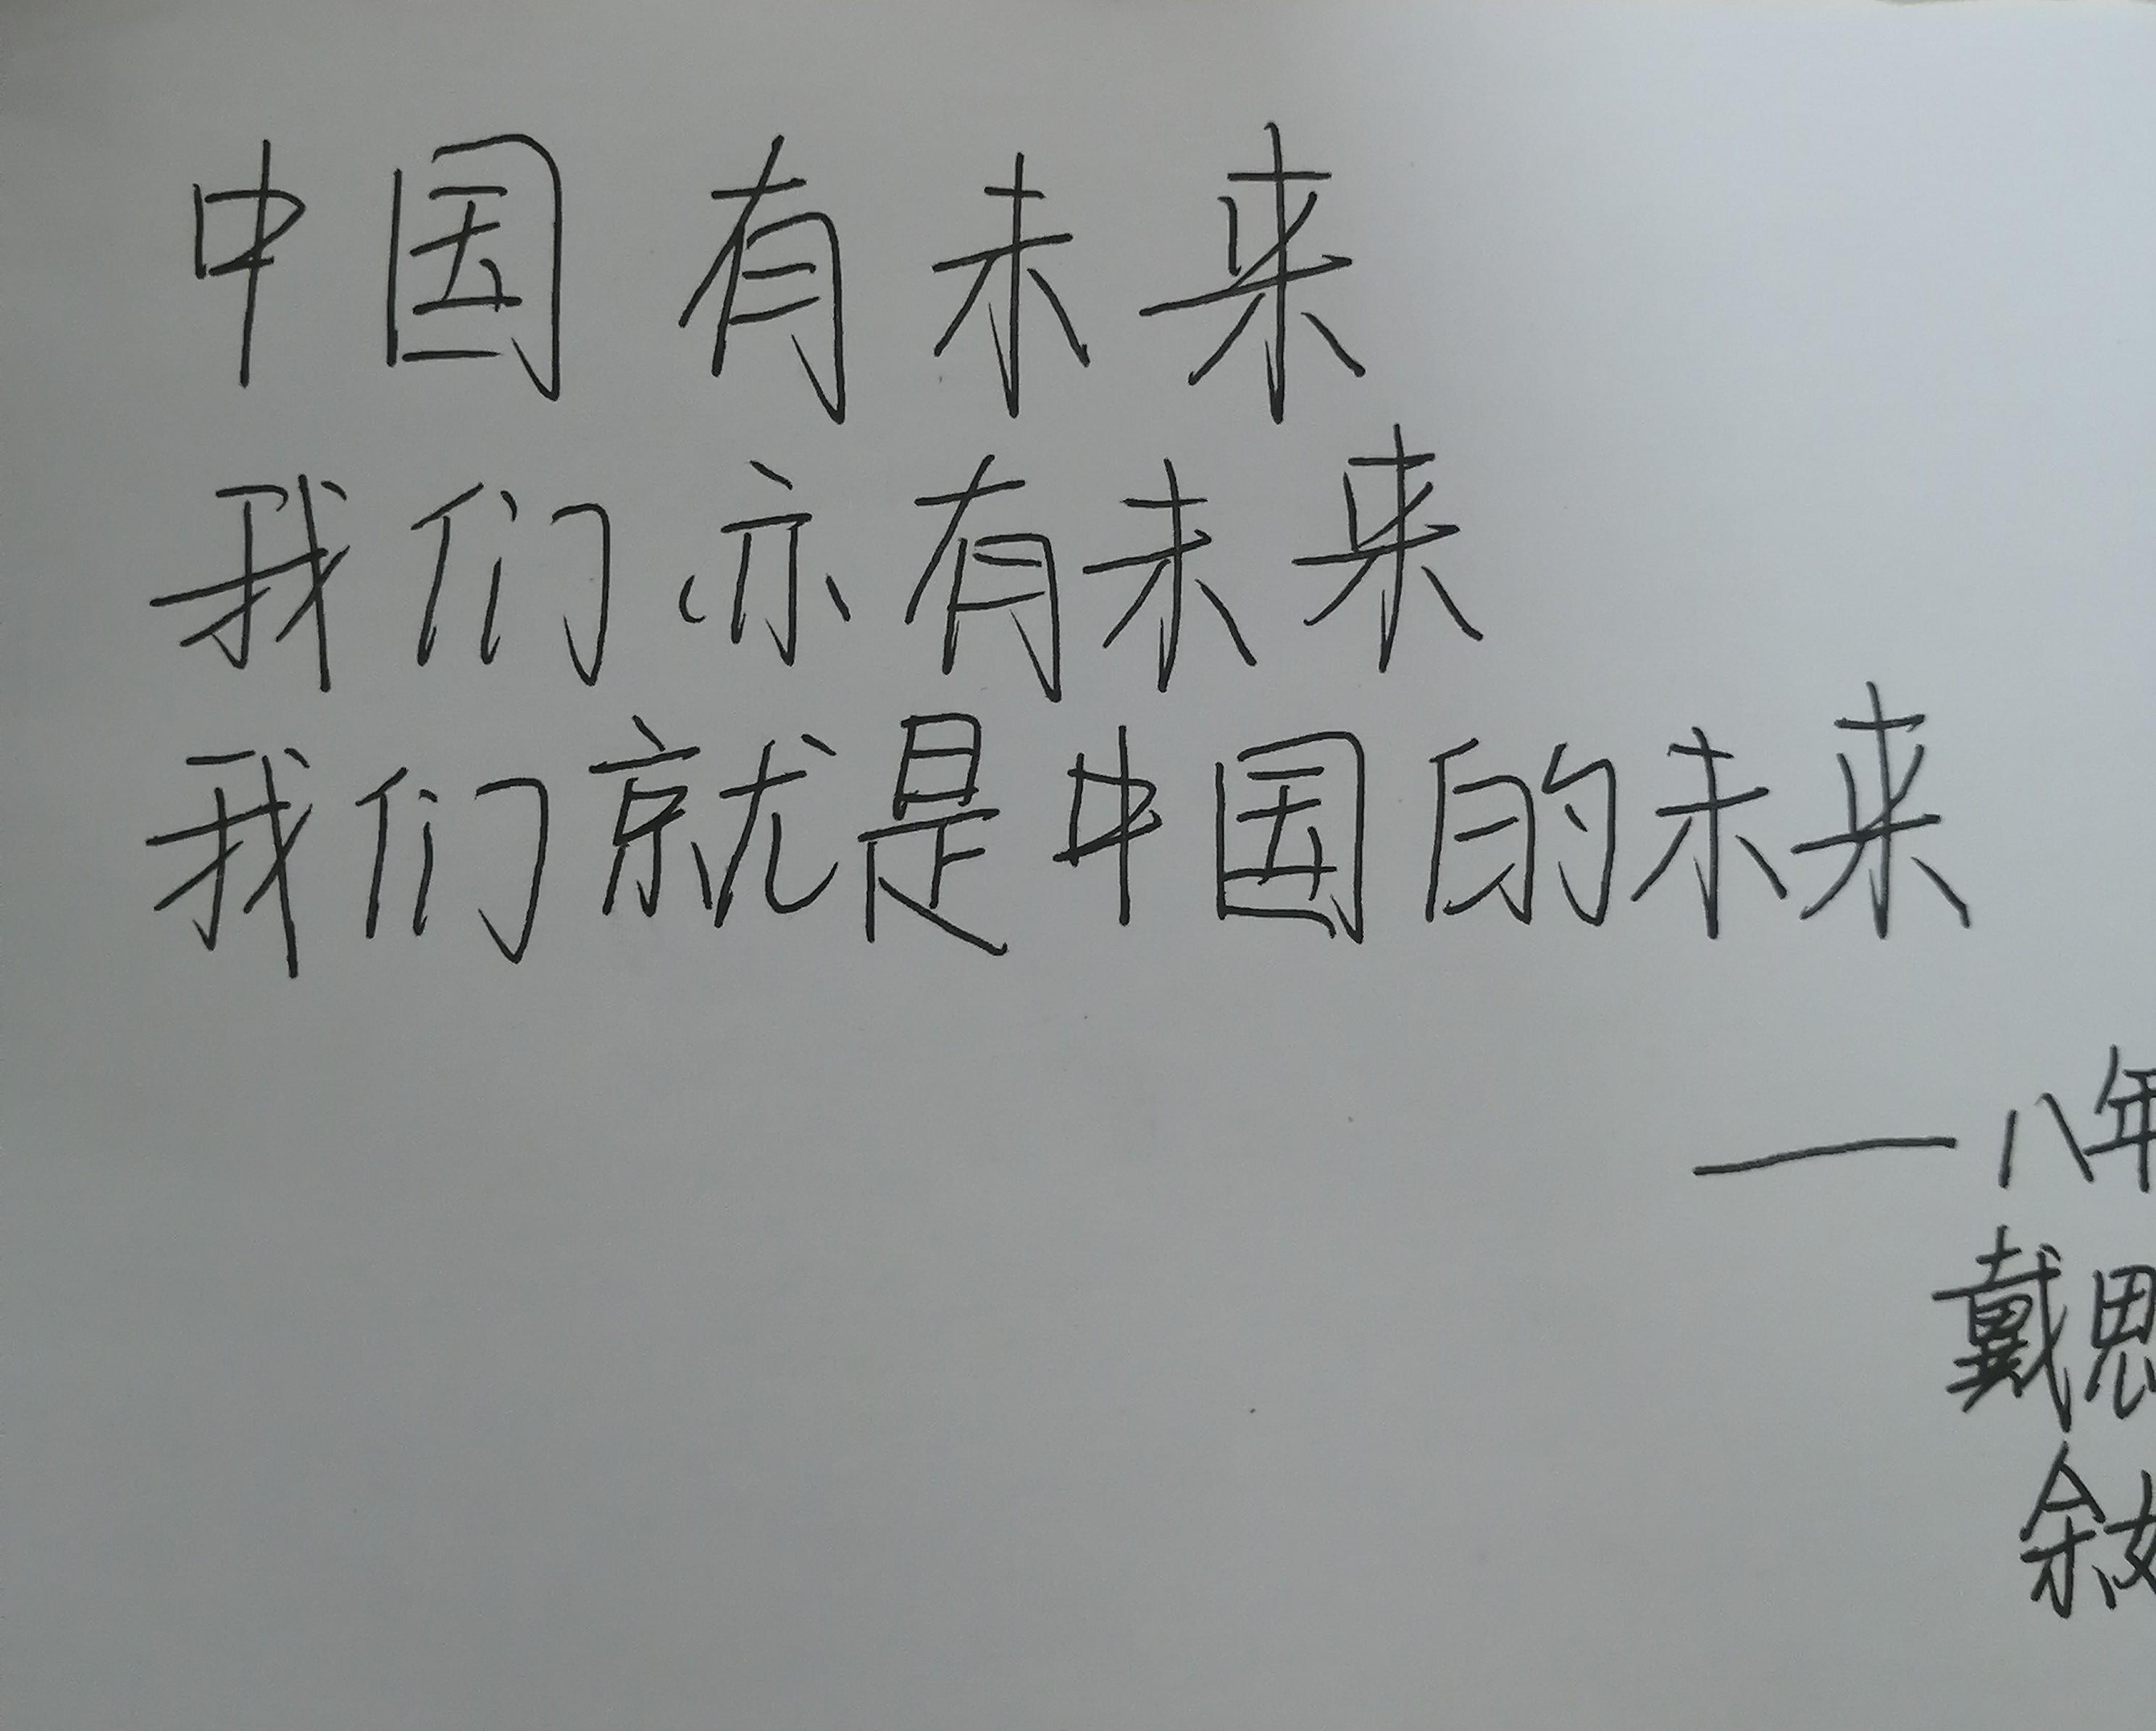 中国有未来
我们亦有未来
我们就是中国的未来
——八年
戴思
余